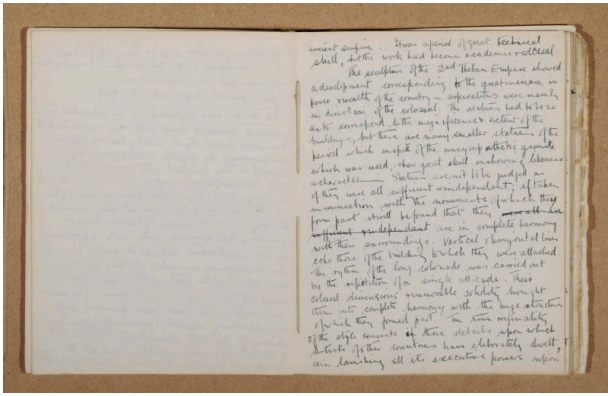 ancient empire. It was a period of great technical
skill, but the work had become academic & colossal.
The sculpture of the 2nd Theban Empire showed
a development corresponding to the great increase in
power & wealth of the country – aspirations were mainly
in direction of the colossal. The statues had to be so
as to correspond to the magnificence & extent of the
buildings, but there are many smaller statues of the
period which in spite of the unsympathetic granite
which was used, show great skill in showing likeness
& character. Statues are not to be judged as
if they were all sufficient & independent; if taken
in connection with the monuments of which they
form part it will be found that they are all are
sufficient & independent are in complete harmony
with their surroundings. Vertical & horizontal lines
echo those of the building to which they were attached
the rythm of the long colonade was carried out
by the repetition of a single attitude. Their
colossal dimensions & immovable solidity brought
them into complete harmony with the huge structures
of which they formed part. The true originality
of the style consists in those details upon which
artists of other countries have elaborately dwelt,
lavishing all its executive powers upon